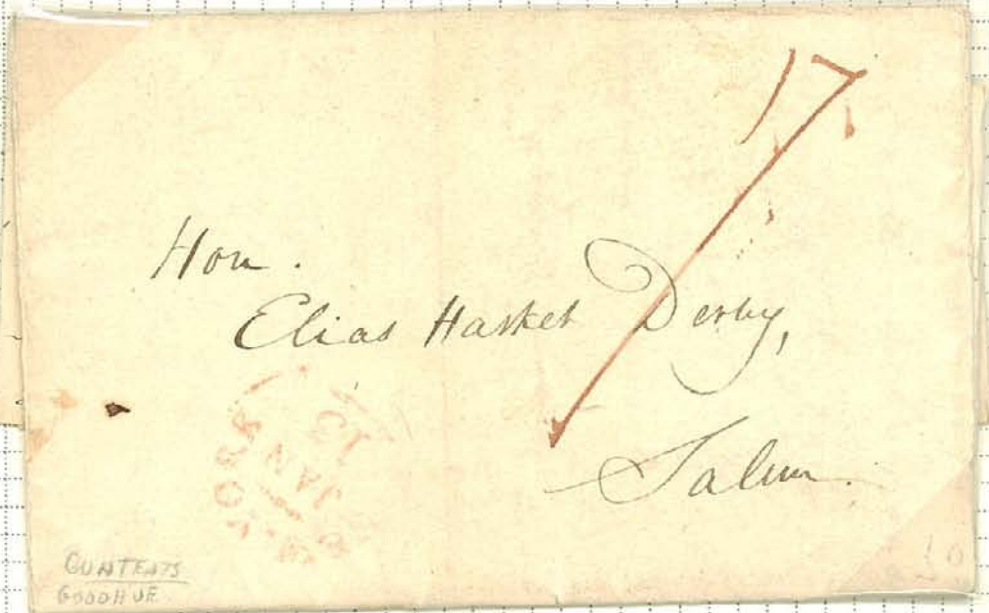 17
Hon.
Elias Hasket Derby,
Salem.
JAN
13
CONTENTS
GOODHUE